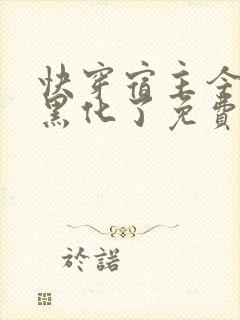 快穿宿主今
黑化了免費
於諾